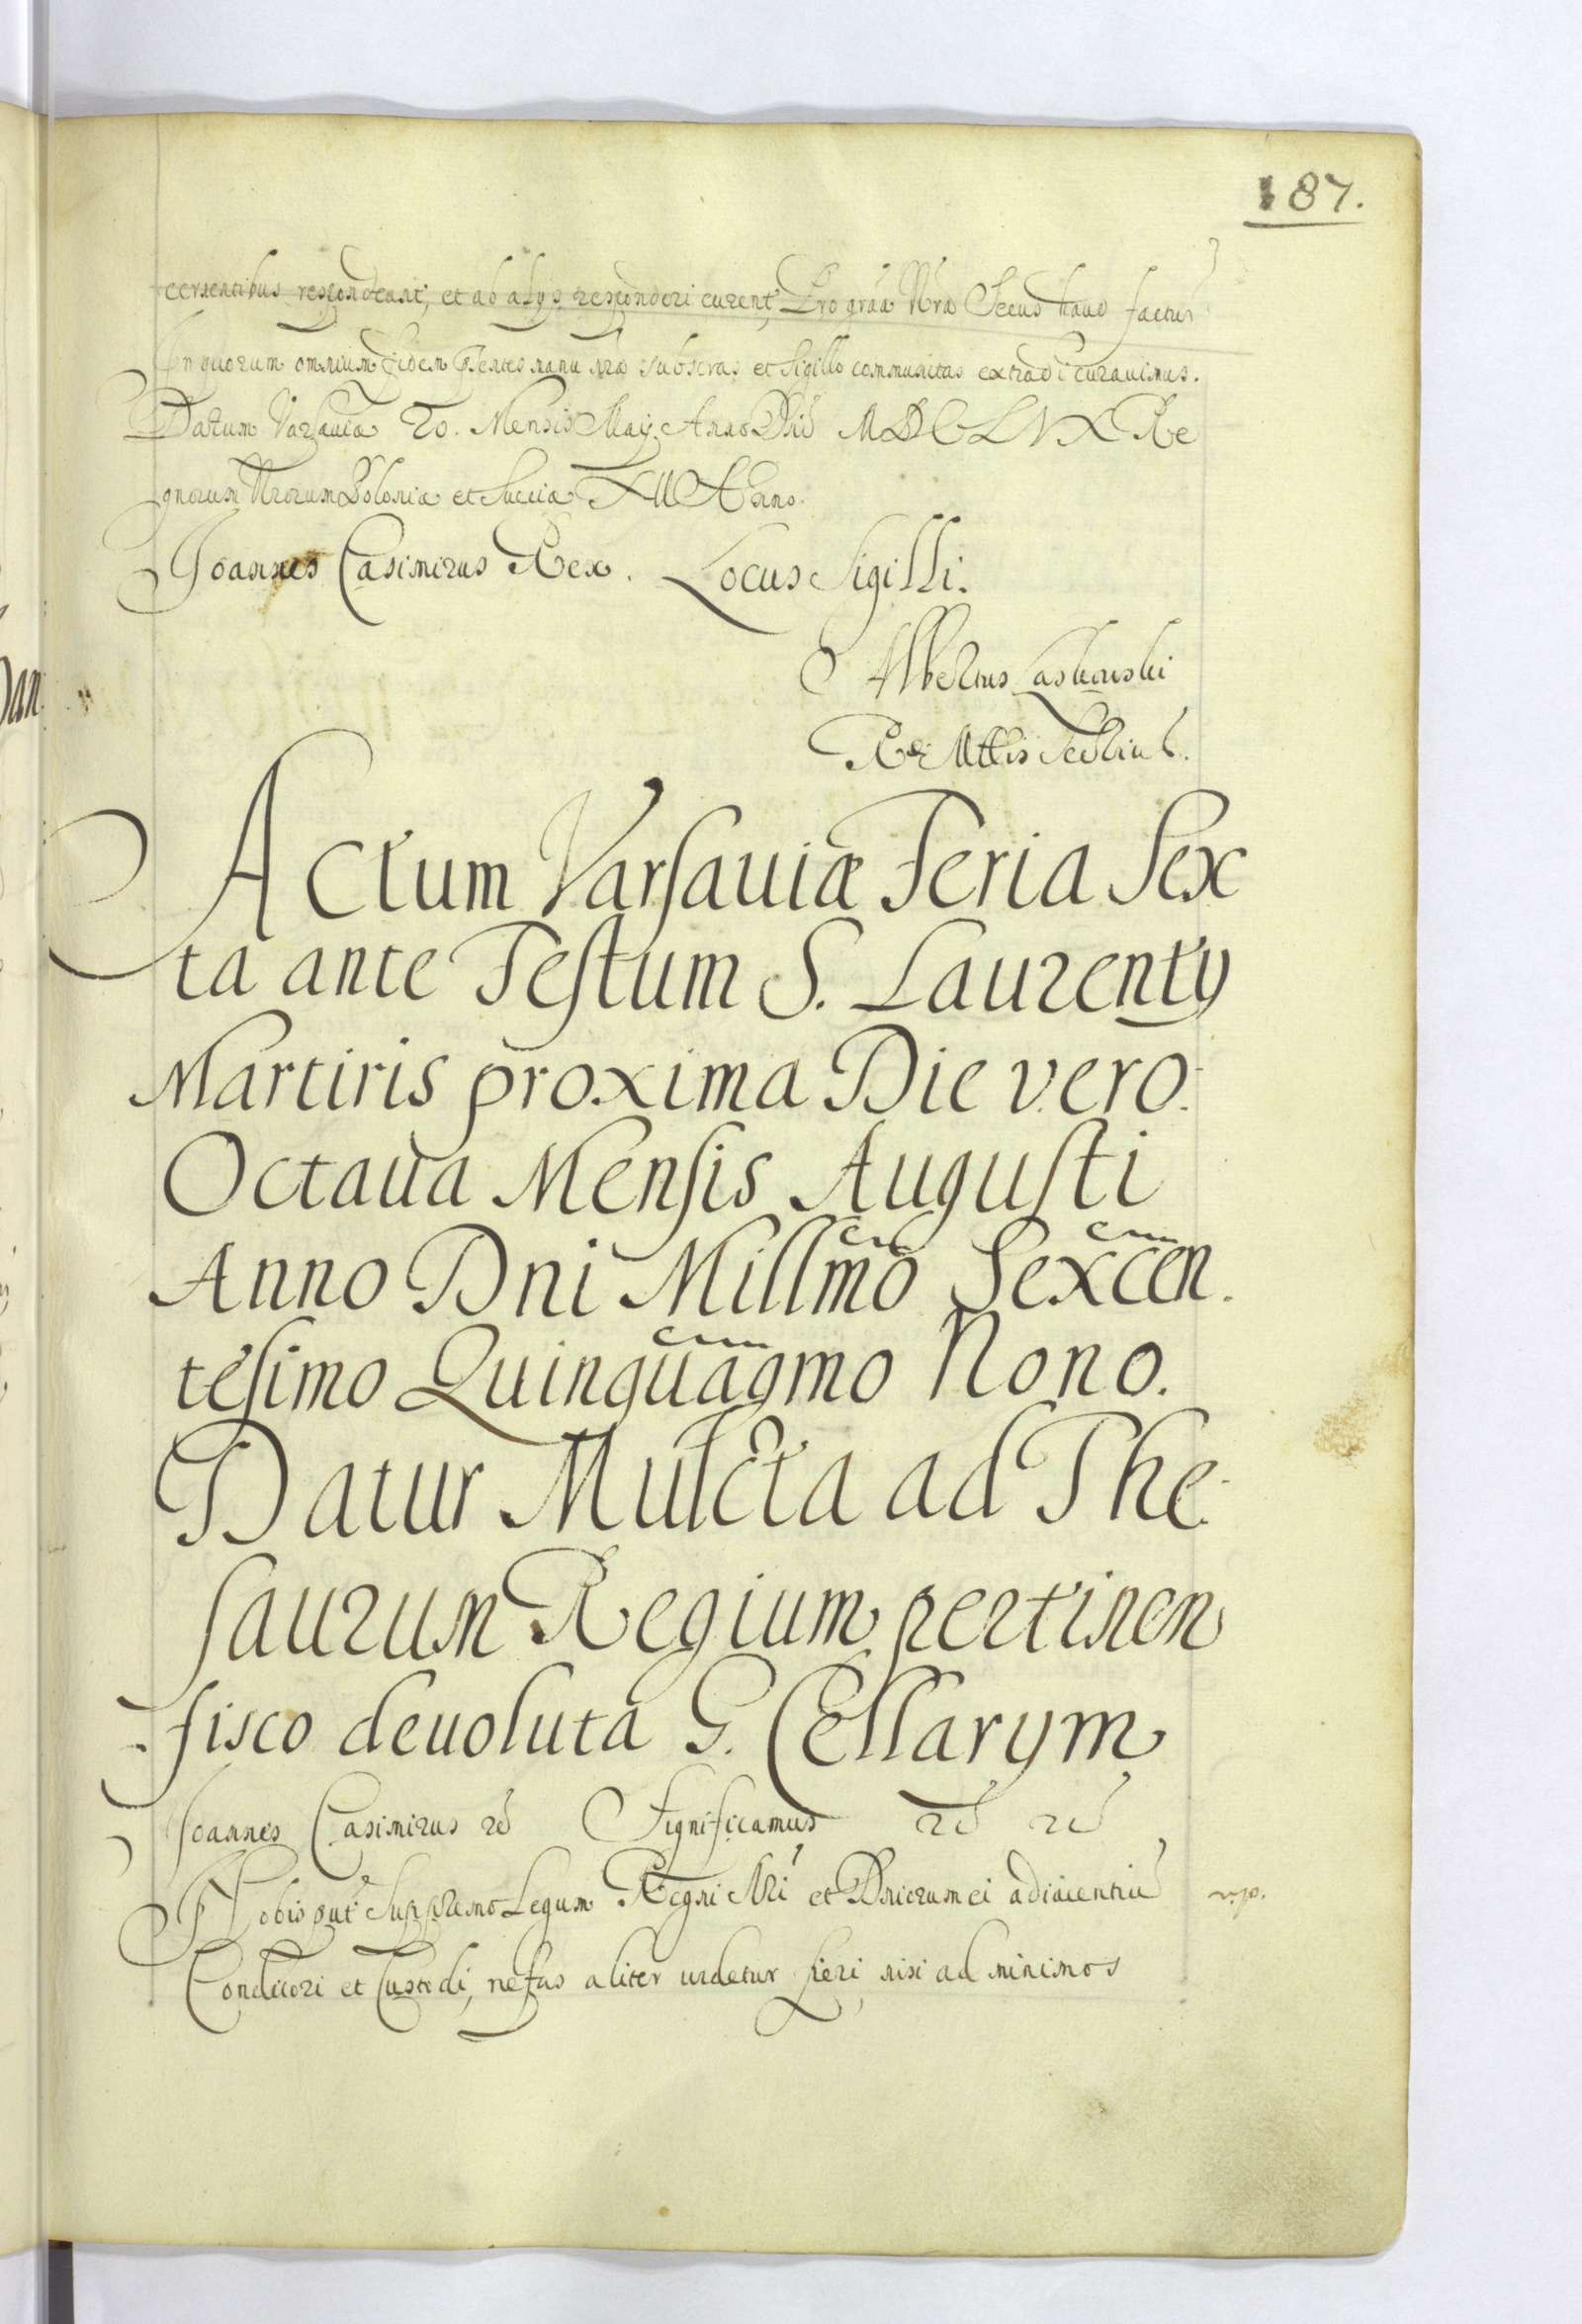 187.
cernentibus respondeant, et ab alys responderi curent, Pro grãa Nra Secus haud factur
In quorum omnium Fidem Pñtes manu nra subscras et Sigillo communitas extradi curauimus.
Datum Varsauiæ 20. Mensis May Anno Dñi MDCLVX Re
gnorum Nrorum Poloniæ et Sueciæ XII Anno.
Joannes Casimirus Rex. Locus Sigilli.
Albertus Laskowski
Rae Mttis Secrius.
Actum Varsauiæ Feria Sex
ta ante Festum S. Laurenty
Martiris proxima Die vero
Octaua Mensis Augusti
Anno Dni Millmo Sexcen
tesimo Quinquagmo Nono.
Datur Mulcta ad The
saurum Regium pertinen
fisco deuoluta G. Cellarym
Joannes Casimirus &c Significamus &c &c
Nobis put Suppremo Legum Regni Nri et Dniorum ei adiacentiu
Conditori et Custodi, nefas aliter uidetur fieri nisi ad minimos